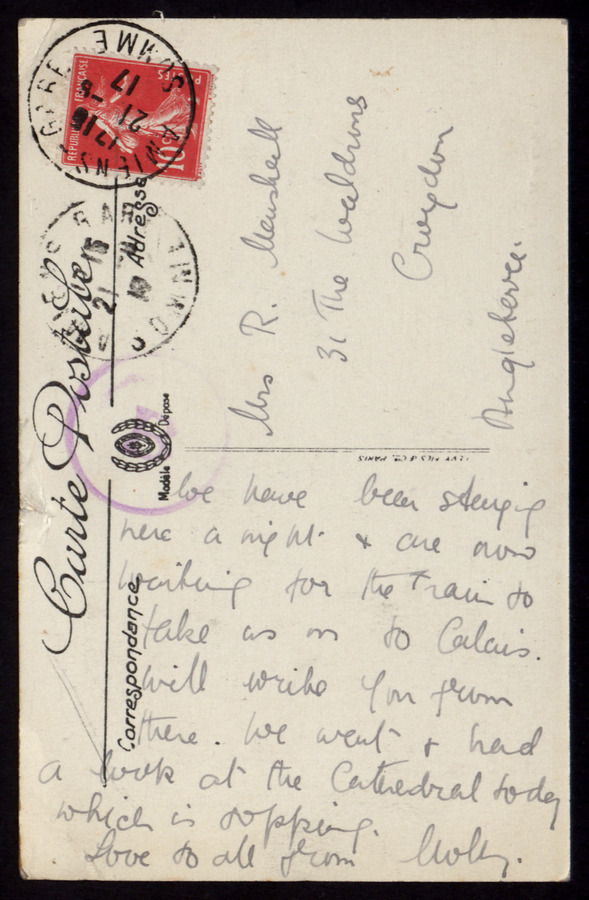 Carte Postale
Correspondance
Adresse
Modèle Déposé
LEVY FILS & Cie. PARIS
REPUBLIQUE FRANÇAISE
POSTES
10c
AMIENS GARE SOMME
17
21 - 8
17
Mrs R. Marshall
31 The Waldrons
Croydon
Angleterre.
We have been staying
here a night & are now
waiting for the Train to
take us on to Calais.
Will write you from
there. We went & had
a look at the Cathedral today
which is ripping.
Love to all from Molly.